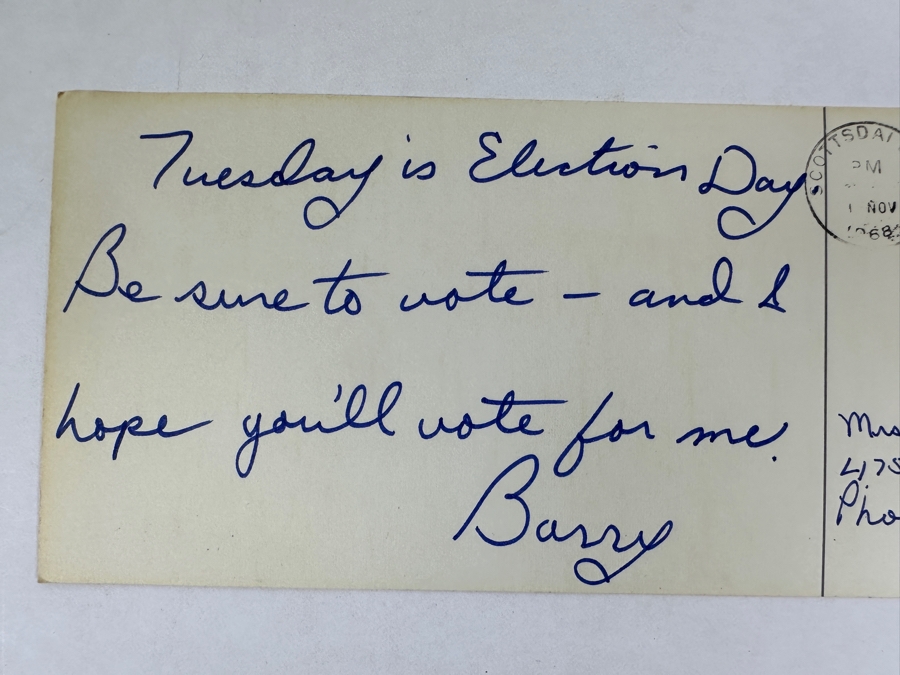 Tuesday is Election Day
Be sure to vote – and I
hope you'll vote for me.
Barry
SCOTTSDAL
PM
1 NOV
1968
Mrs
475
Pho